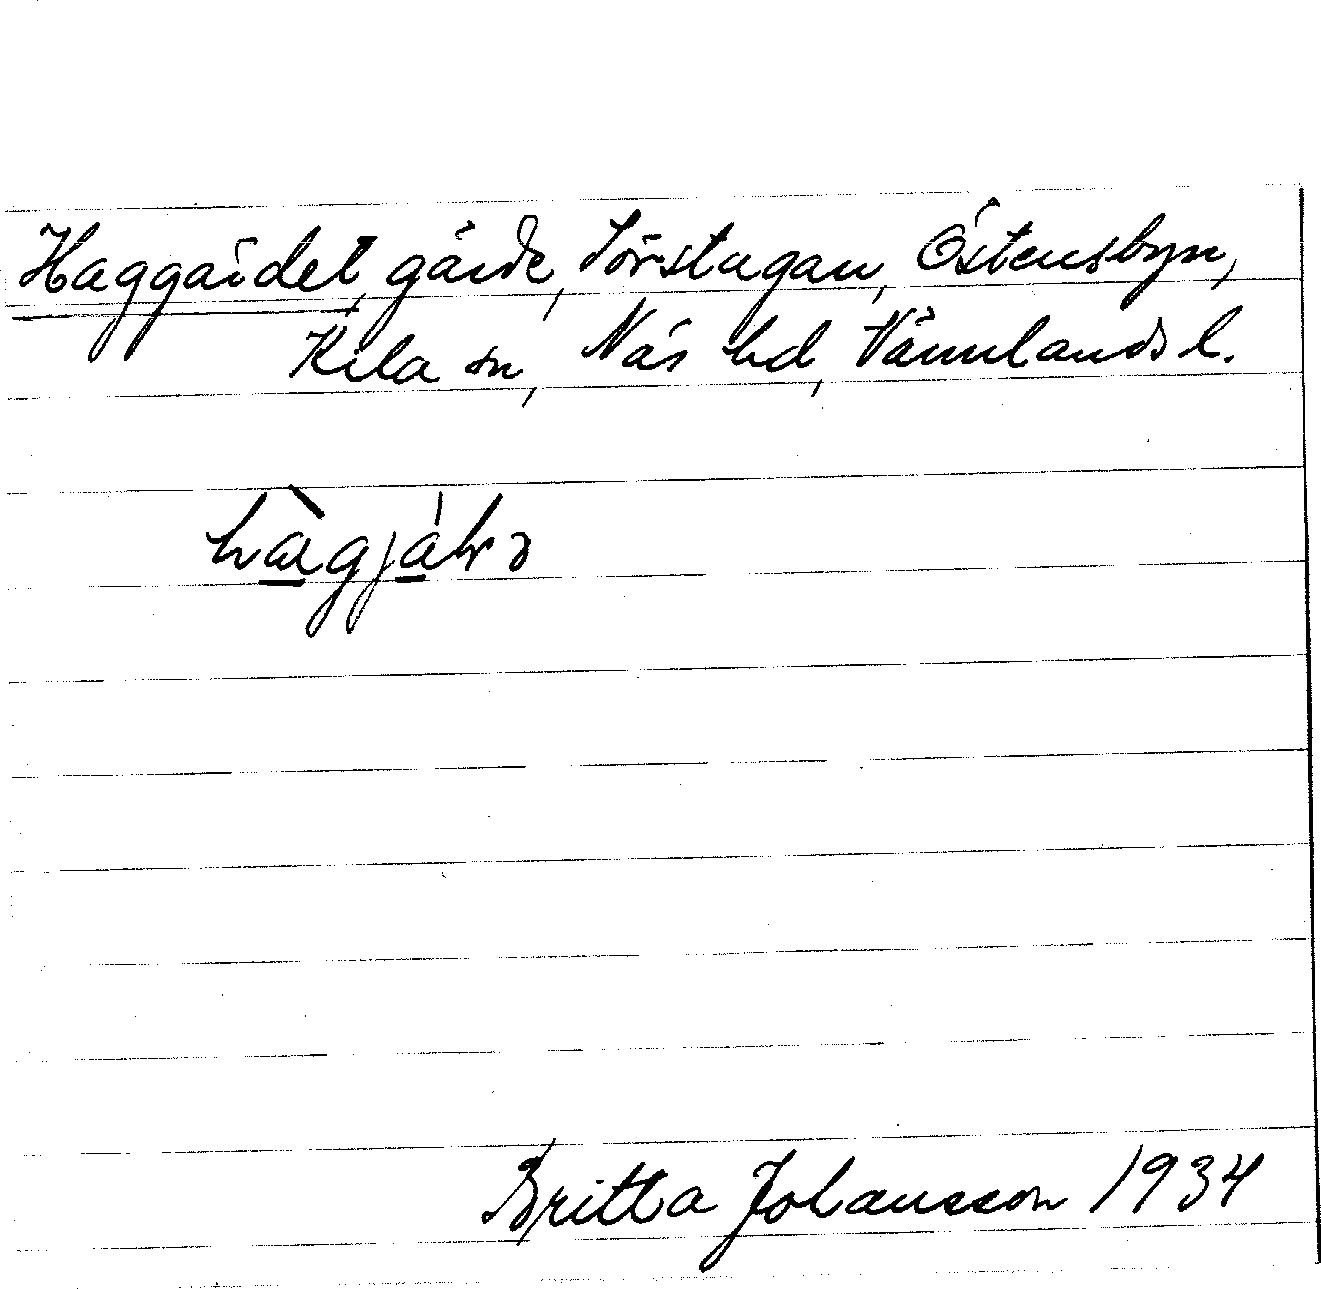 Haggärdet, gärde, Sörstugan, Östensbyn,
Kila sn, Näs hd, Värmlands l.
Britta Johansson 1934